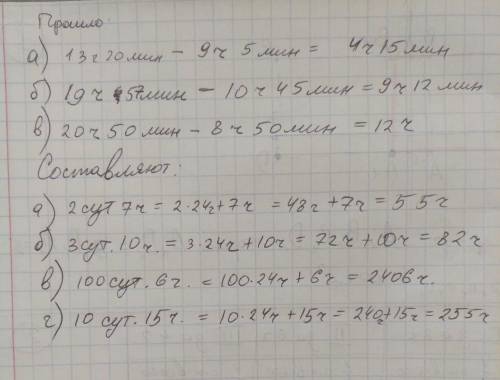 Прошло
а) 13ч 20 мин - 9ч 5 мин = 4ч 15 мин
б) 19ч 57 мин - 10ч 45 мин = 9ч 12 мин
в) 20ч 50 мин - 8ч 50 мин = 12ч
Составляют:
а) 2 сут 7ч = 2·24ч + 7ч = 48ч + 7ч = 55ч
б) 3 сут. 10ч. = 3·24ч + 10ч = 72ч + 10ч = 82ч
в) 100 сут. 6ч. = 100·24ч + 6ч = 2406ч.
г) 10 сут. 15ч. = 10·24ч + 15ч = 240ч + 15ч = 255ч